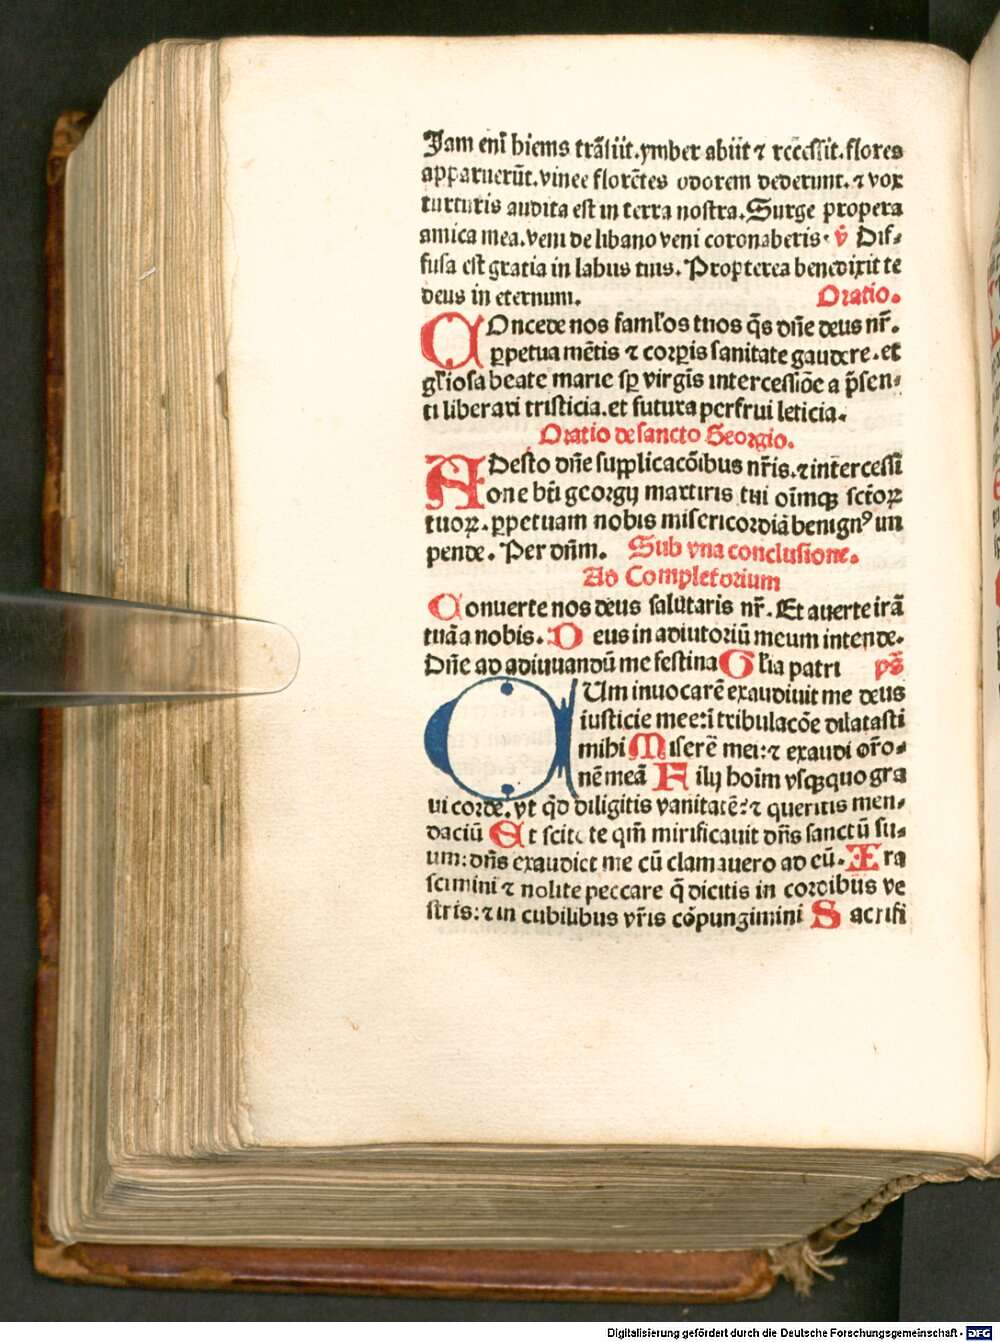 Jam eni̅ hiems tra̅siit. ymber abiit ⁊ recessit. flores
apparueru̅t. vinee flore̅tes odorem dederunt. ⁊ vox
turturis audita est in terra nostra. Surge propera
amica mea. veni de libano veni coronaberis. v̅ Dif⸗
fusa est gratia in labiis tuis. Propterea benedixit te
deus in eternum. Oratio.
COncede nos faml'os tuos q̅s dn̅e deus nr̅.
ꝑpetua me̅tis ⁊ corꝑis sanitate gaudere. et
gl'iosa beate marie sp̅ virgi̅s intercessio̅e a p̅sen⸗
ti liberari tristicia. et futura perfrui leticia.
Oratio de sancto Georgio.
ADesto dn̅e supplicaco̅ibus nr̅is. ⁊ intercessi
one bti̅ georgij martiris tui oi̅mqꝫ sctoꝝ
tuoꝝ. ꝑpetuam nobis misericordia̅ benignꝰ im
pende. Per dn̅m. Sub vna conclusione.
Ad Completorium
Conuerte nos deus salutaris nr̅. Et auerte ira̅
tua̅ a nobis. D eus in adiutoriu̅ meum intende.
Dn̅e ad adiuuandu̅ me festina Gl'ia patri ps̅
CUm inuocare̅ exaudiuit me deus
iusticie mee: i̅ tribulaco̅e dilatasti
mihi Misere̅ mei: ⁊ exaudi or̅o⸗
ne̅ mea̅ Filij hoi̅m vsqꝫquo gra
ui corde. vt qd̅ diligitis vanitate̅: ⁊ queritis men⸗
daciu̅ Et scitote qm̅ mirificauit dn̅s sanctu̅ su⸗
um: dn̅s exaudiet me cu̅ clamauero ad eu̅. Ira
scimini ⁊ nolite peccare q̅ dicitis in cordibus ve
stris: ⁊ in cubilibus vr̅is co̅pungimini Sacrifi
Digitalisierung gefördert durch die Deutsche Forschungsgemeinschaft - DFG